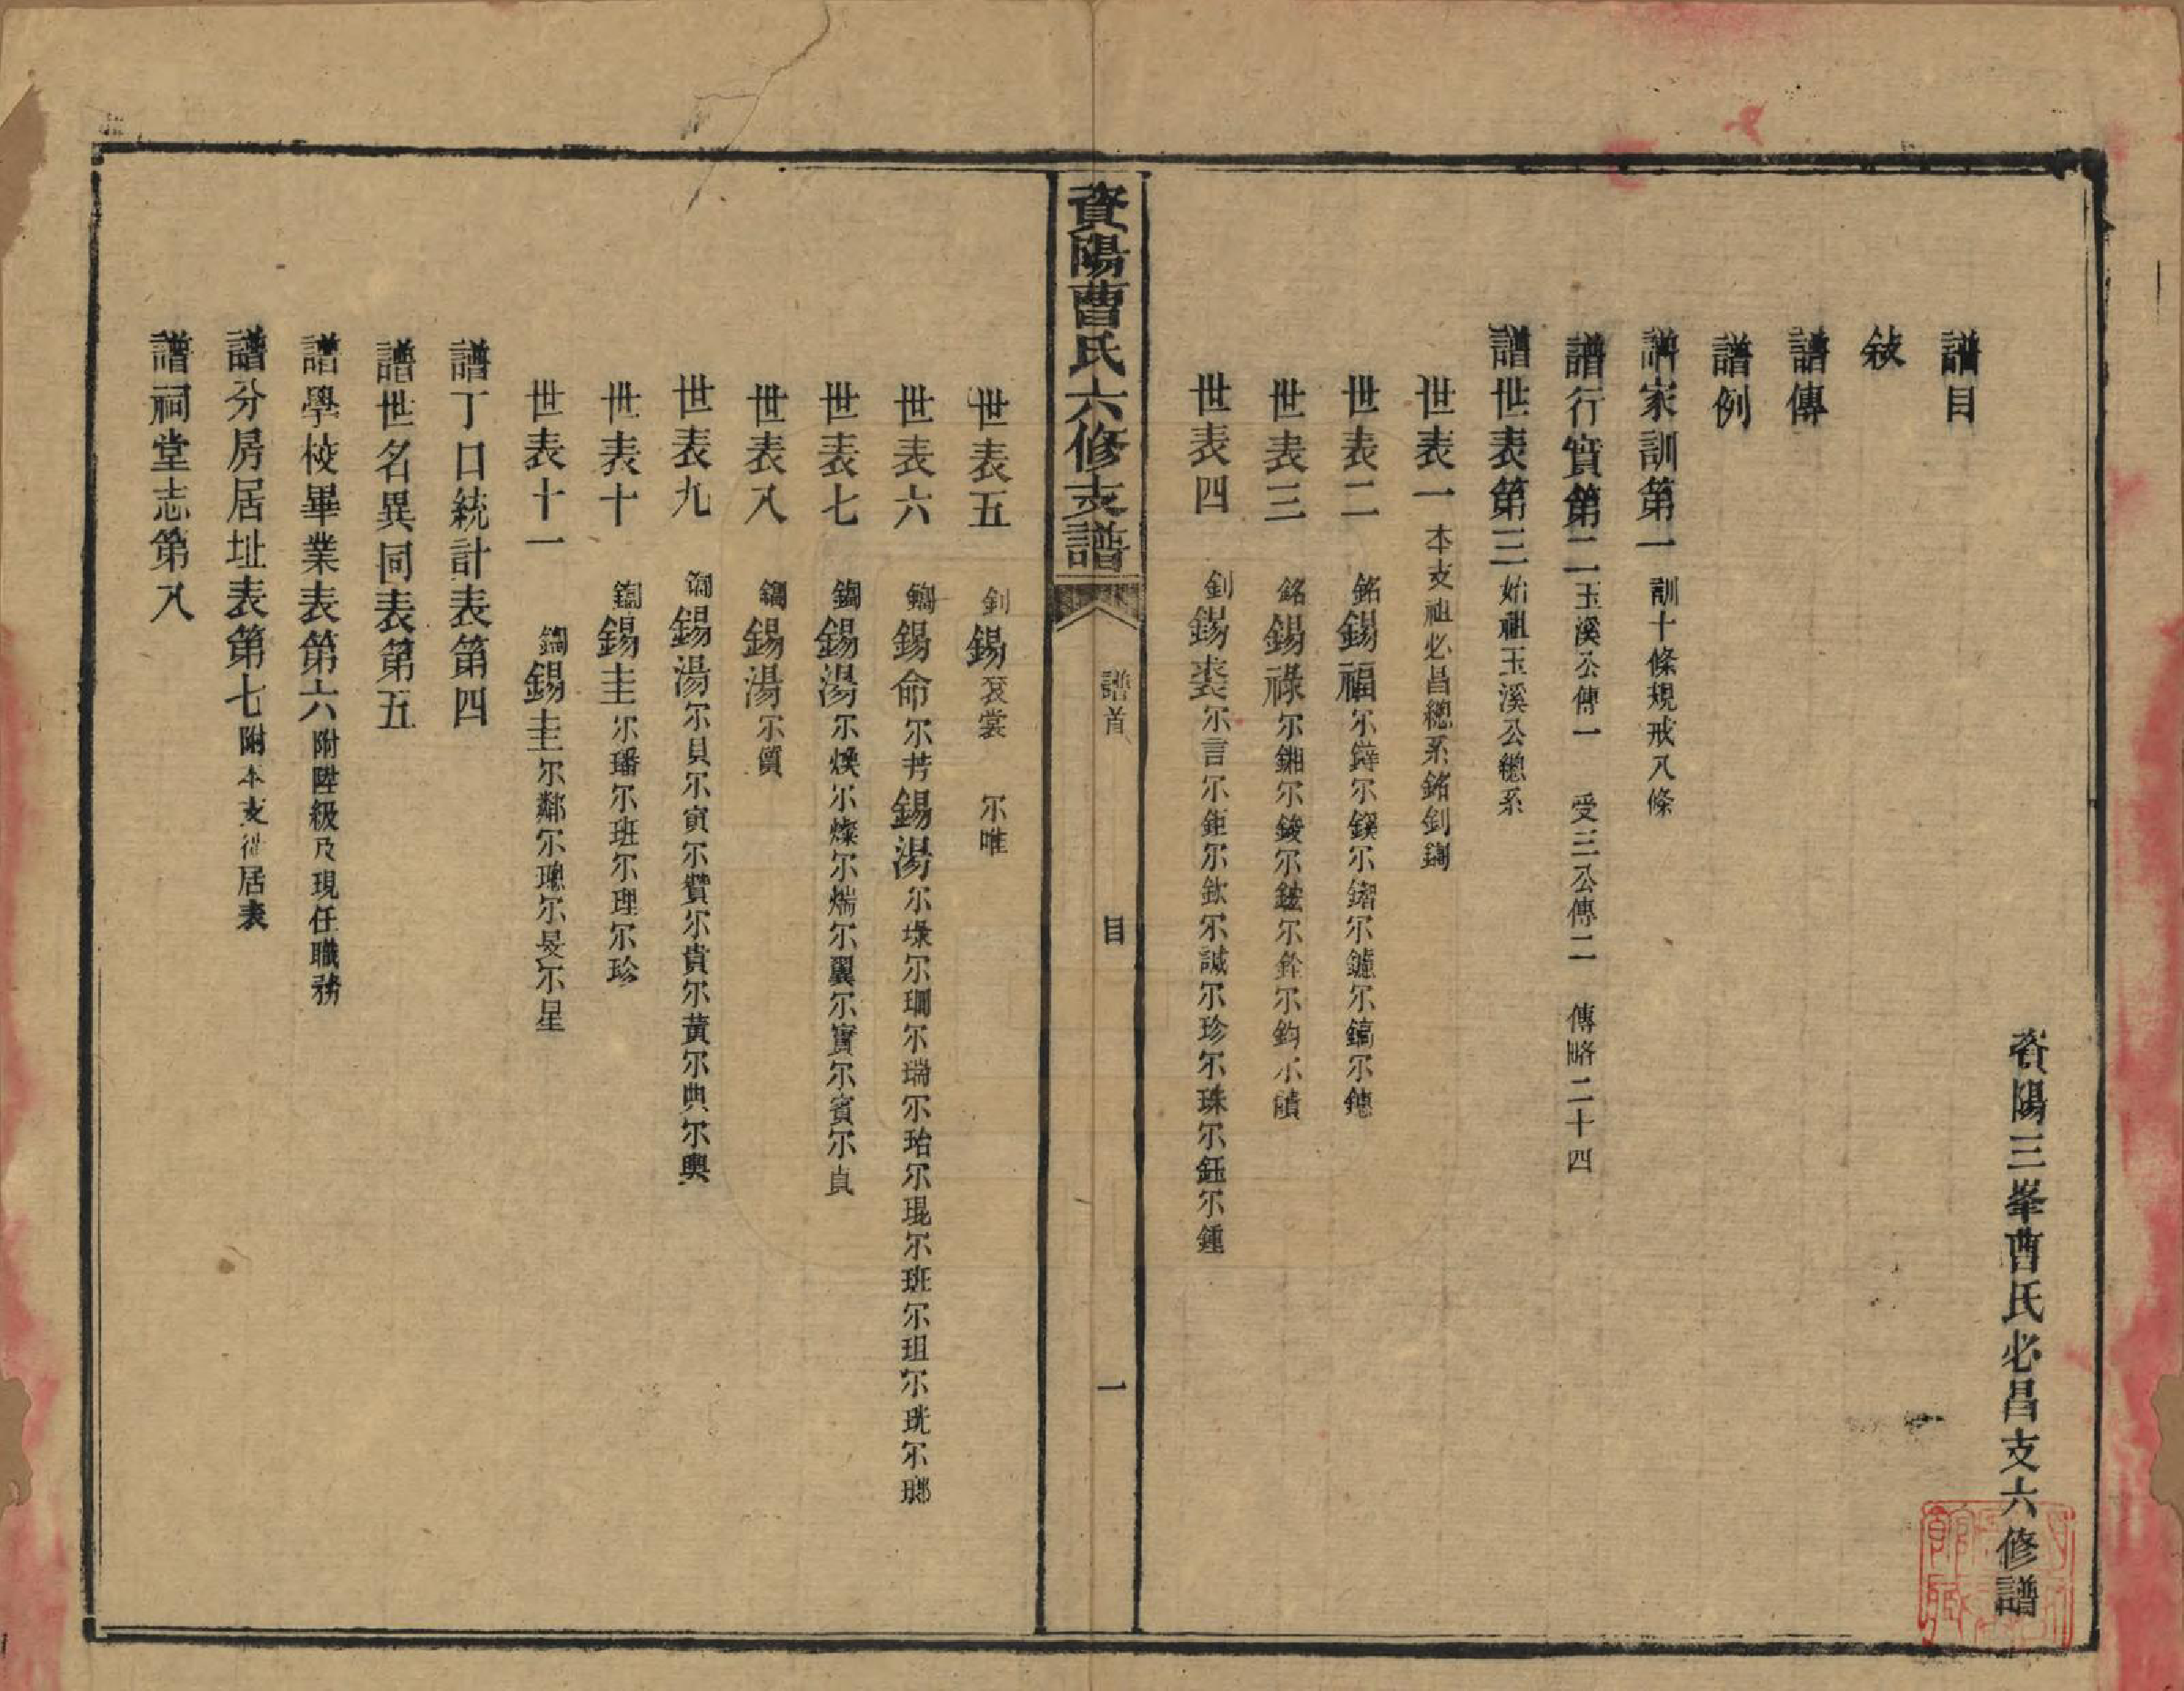 資陽三峯曹氏必昌支六修譜
譜目
敍
譜傳
譜例
譜家訓第一 訓十條規戒八條
譜行實第二 玉溪公傳一 受三公傳二 傳略二十四
譜世表第三 始祖玉溪公總系
世表一 本支祖必昌總系銘釗鐧
世表二 銘錫福尔鋅尔鎂尔鏘尔鑪尔鎬尔鏓
世表三 銘錫祿尔鎺尔鋑尔鋕尔銓尔鈞尔鐼
世表四 釗錫裘尔言尔鉅尔欽尔誠尔珍尔珠尔鈺尔鍾
資陽曹氏六修支譜 譜首 目 一
世表五 釗錫袞裳 尔唯
世表六 鐧錫命尔芳錫湯尔瑑尔瑚尔瑞尔珆尔琨尔班尔珇尔珖尔瑯
世表七 鐧錫湯尔煥尔燦尔煓尔翼尔實尔賓尔貞
世表八 鐧錫湯尔質
世表九 鐧錫湯尔貝尔寅尔贊尔貴尔黃尔典尔輿
世表十 鐧錫圭尔璠尔班尔理尔珍
世表十一 鐧錫圭尔鄰尔璁尔旻尔星
譜丁口統計表第四
譜世名異同表第五
譜學校畢業表第六 附陞級及現任職務
譜分房居址表第七 附本支徙居表
譜祠堂志第八